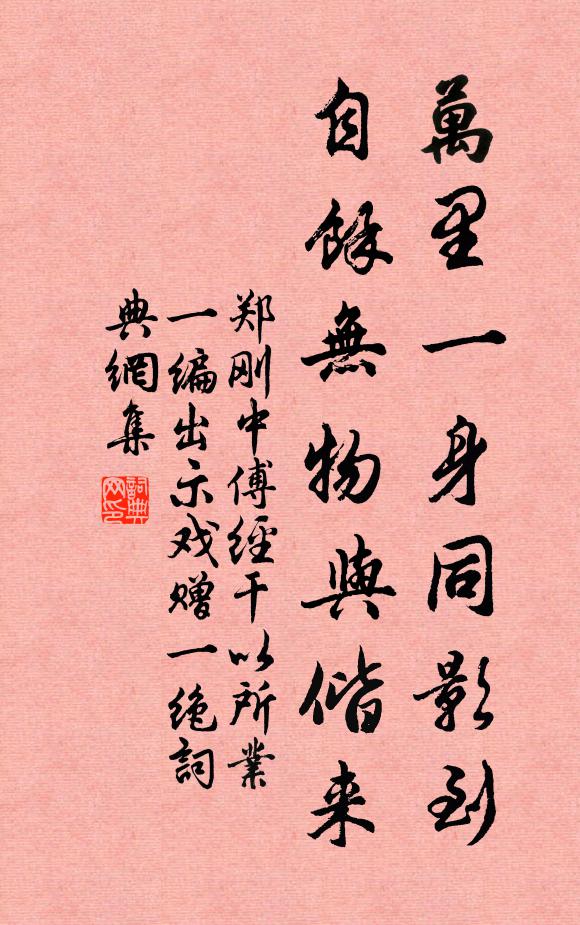 萬里一身同影到
自餘無物與偕来
郑刚中傅經干以所業
一编出示戏赠一绝詞
典網集
詞典
网印